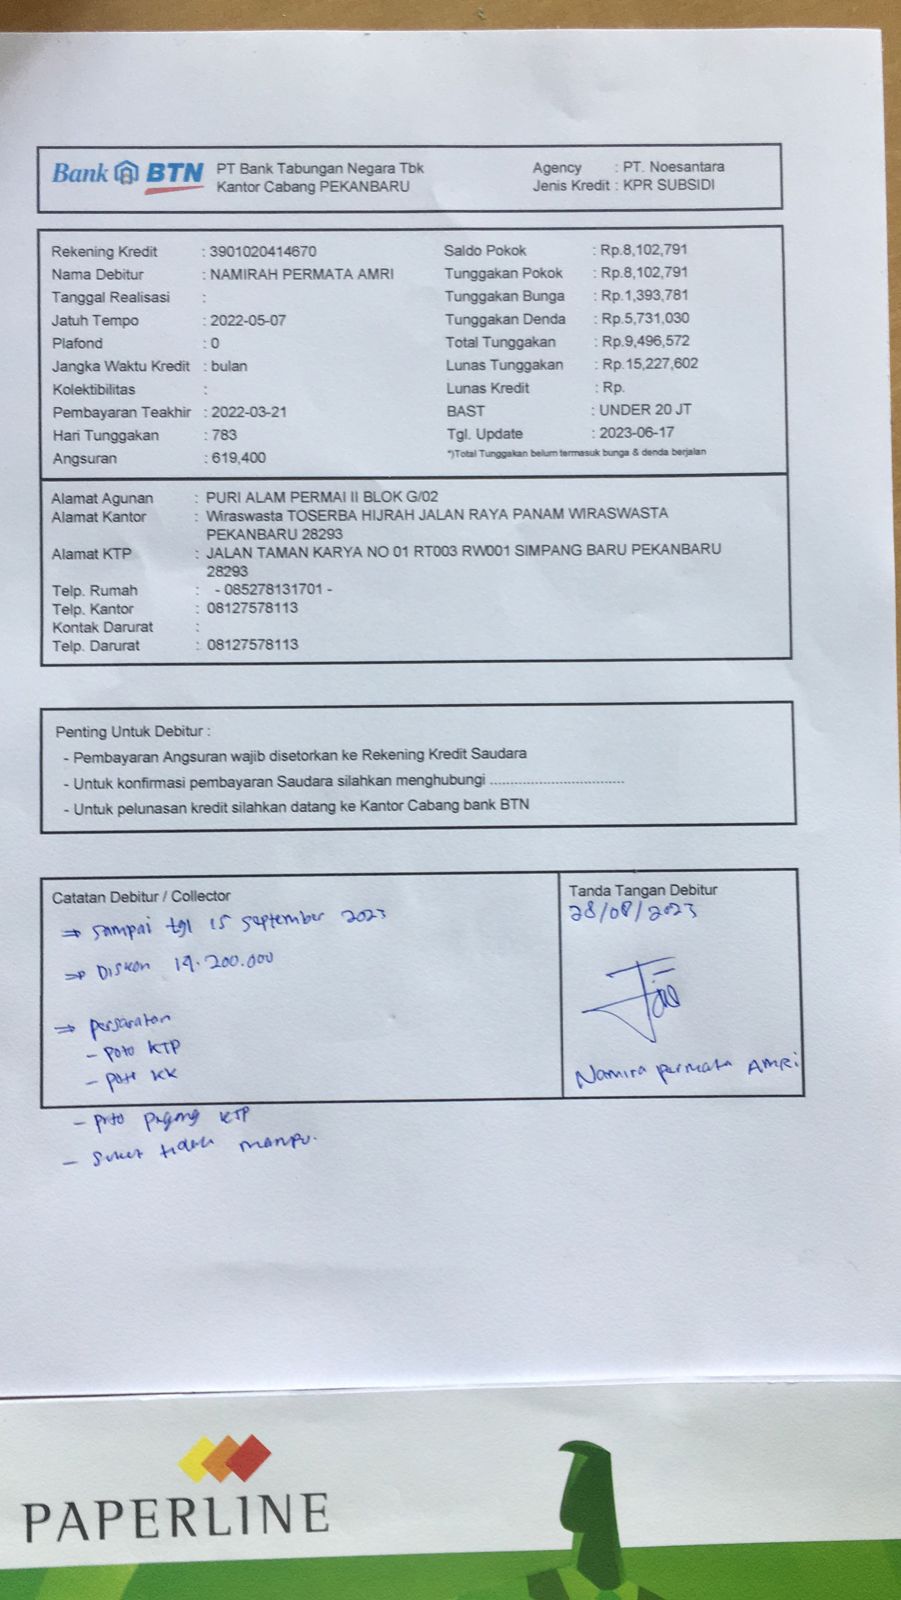 Bank BTN
PT Bank Tabungan Negara Tbk
Kantor Cabang PEKANBARU
Agency : PT. Noesantara
Jenis Kredit : KPR SUBSIDI
Rekening Kredit : 3901020414670
Nama Debitur : NAMIRAH PERMATA AMRI
Tanggal Realisasi :
Jatuh Tempo : 2022-05-07
Plafond : 0
Jangka Waktu Kredit : bulan
Kolektibilitas :
Pembayaran Teakhir : 2022-03-21
Hari Tunggakan : 783
Angsuran : 619,400
Saldo Pokok : Rp.8,102,791
Tunggakan Pokok : Rp.8,102,791
Tunggakan Bunga : Rp.1,393,781
Tunggakan Denda : Rp.5,731,030
Total Tunggakan : Rp.9,496,572
Lunas Tunggakan : Rp.15,227,602
Lunas Kredit : Rp.
BAST : UNDER 20 JT
Tgl. Update : 2023-06-17
*)Total Tunggakan belum termasuk bunga & denda berjalan
Alamat Agunan : PURI ALAM PERMAI II BLOK G/02
Alamat Kantor : Wiraswasta TOSERBA HIJRAH JALAN RAYA PANAM WIRASWASTA
PEKANBARU 28293
Alamat KTP : JALAN TAMAN KARYA NO 01 RT003 RW001 SIMPANG BARU PEKANBARU
28293
Telp. Rumah : - 085278131701 -
Telp. Kantor : 08127578113
Kontak Darurat :
Telp. Darurat : 08127578113
Penting Untuk Debitur :
- Pembayaran Angsuran wajib disetorkan ke Rekening Kredit Saudara
- Untuk konfirmasi pembayaran Saudara silahkan menghubungi .................................
- Untuk pelunasan kredit silahkan datang ke Kantor Cabang bank BTN
Catatan Debitur / Collector
⇒ sampai tgl 15 september 2023
⇒ Diskon 14.200.000
⇒ persaratan
- poto KTP
- poto KK
- poto pegang KTP
- suket tidak mampu.
Tanda Tangan Debitur
28/08/2023
Namira permata AMRi
PAPERLINE